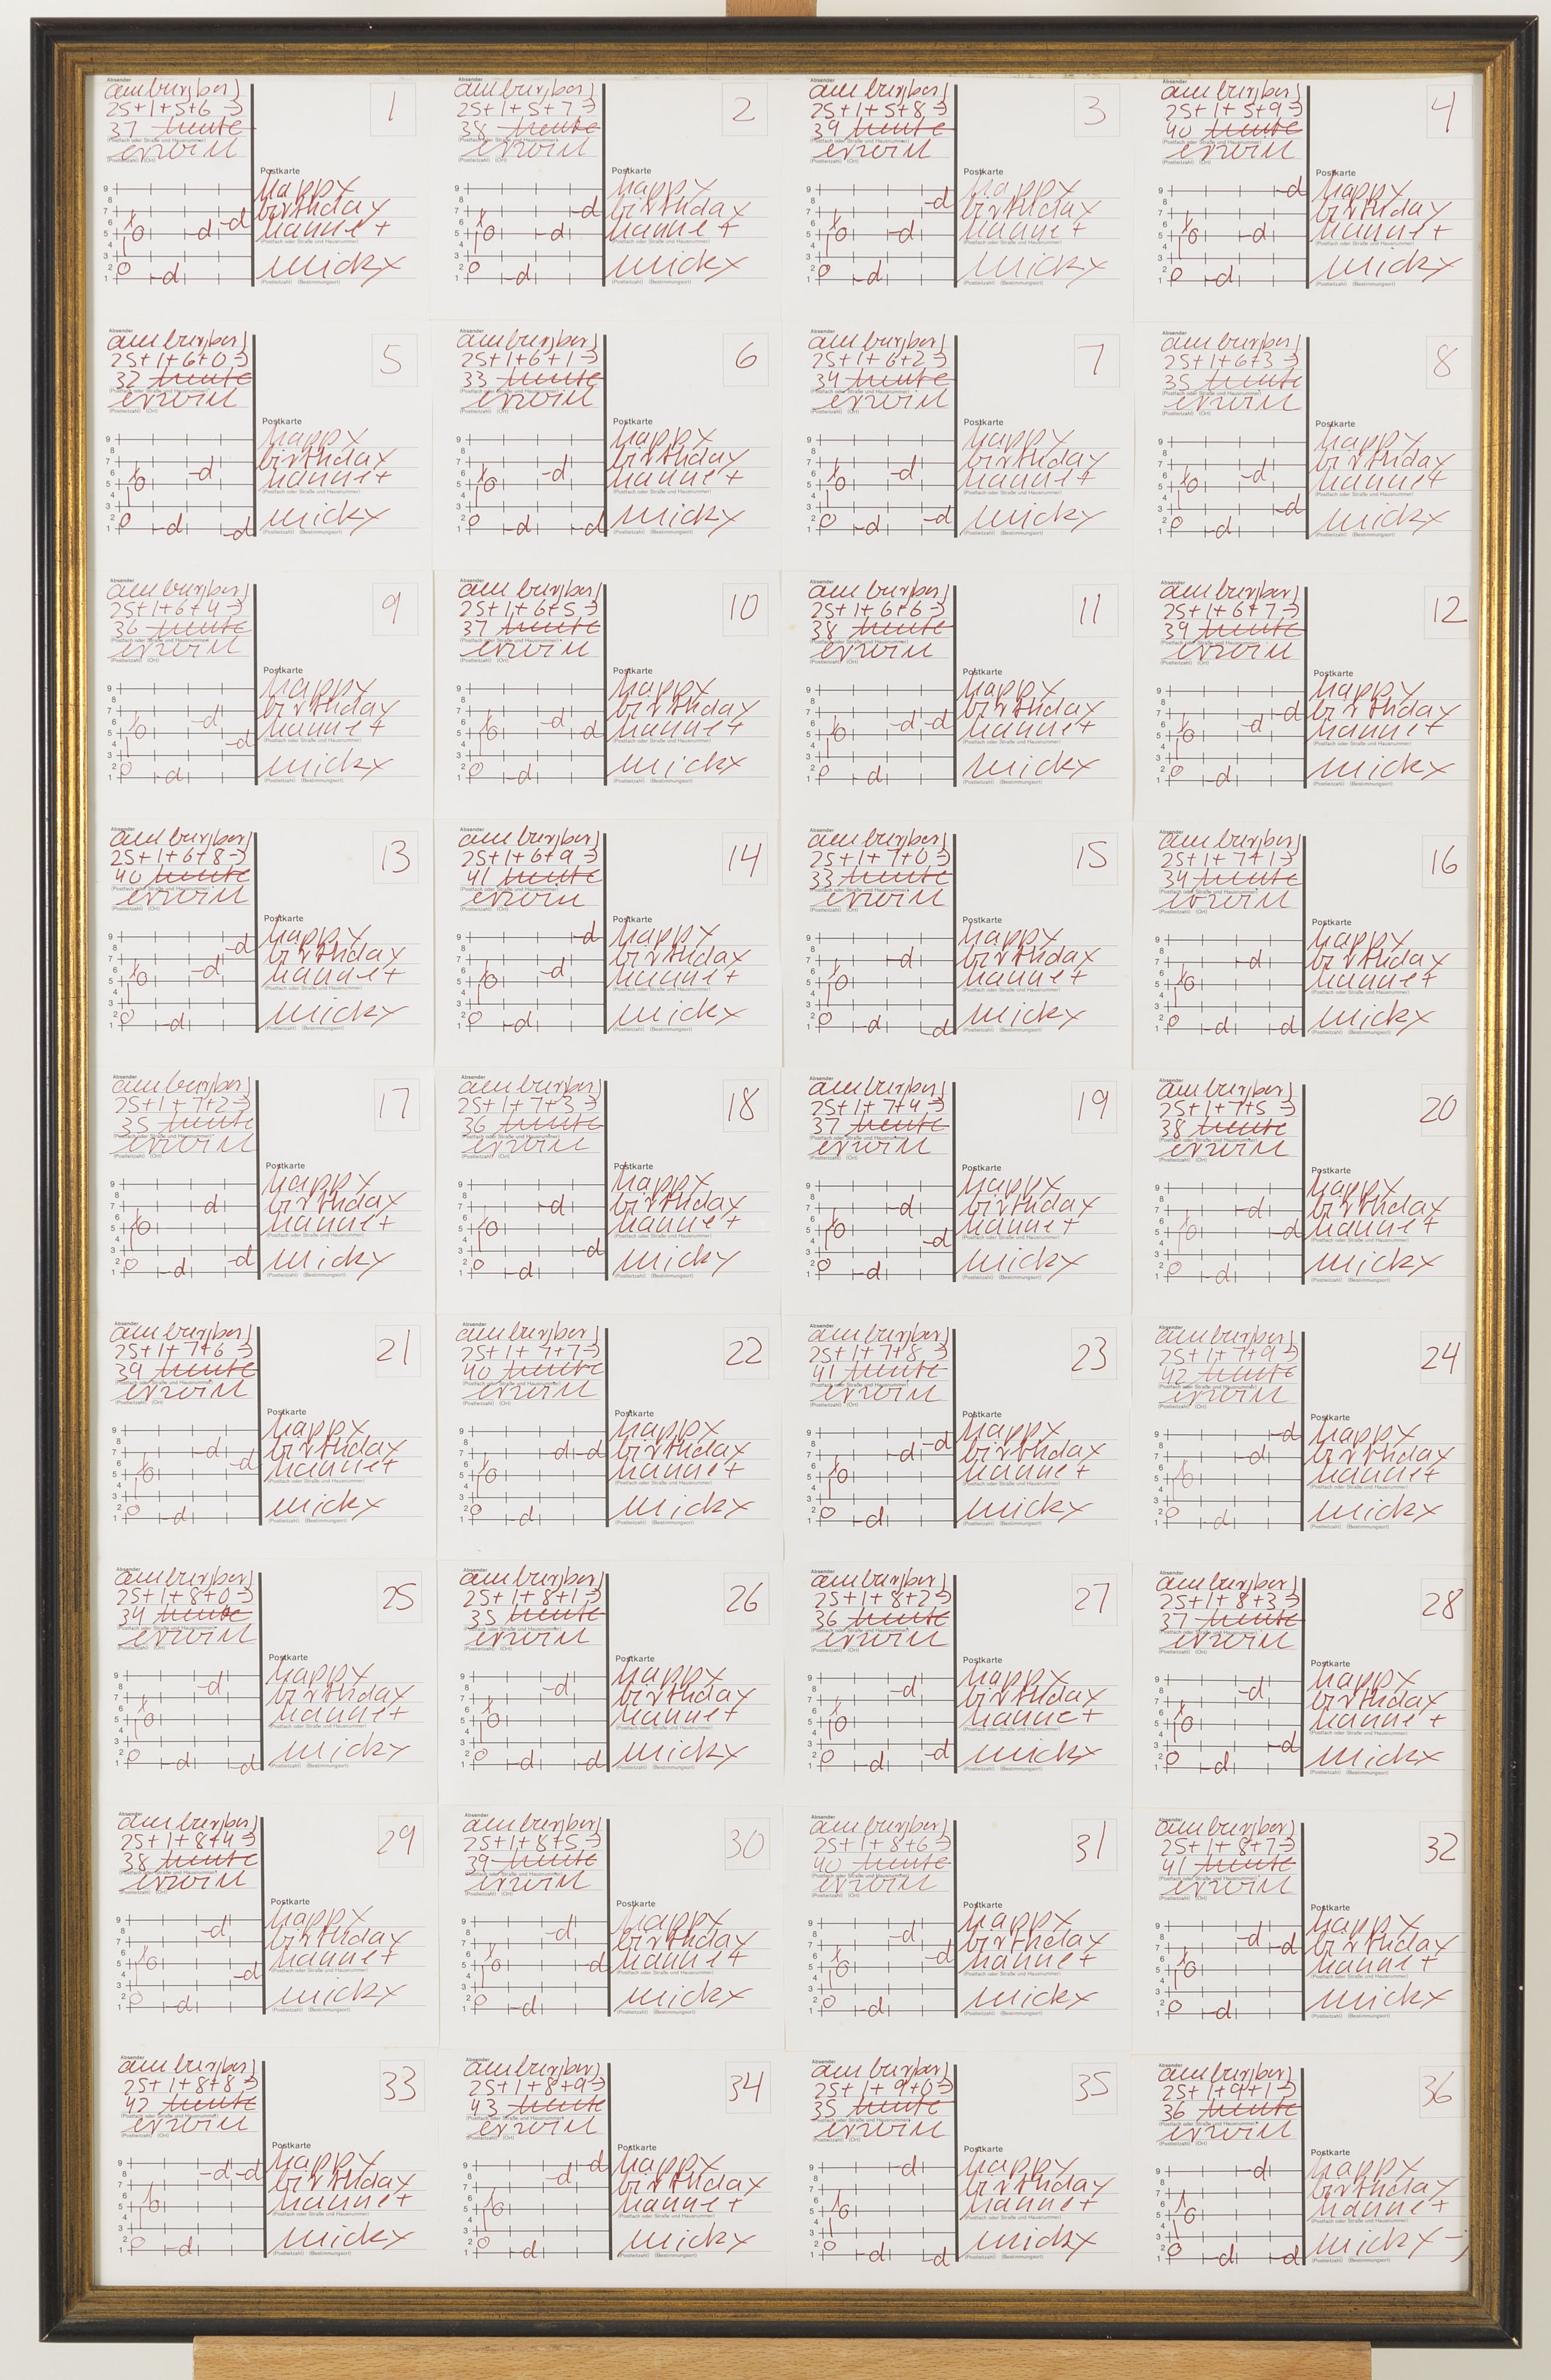 Absender
am burgberg
25+1+5+6→
37 heute
(Postfach oder Straße und Hausnummer)
erwin
(Postleitzahl) (Ort)
1
Postkarte
happy
birthday
hanne+
(Postfach oder Straße und Hausnummer)
micky
(Postleitzahl) (Bestimmungsort)
Absender
am burgberg
25+1+5+7→
38 heute
erwin
2
Postkarte
happy
birthday
hanne+
micky
Absender
am burgberg
25+1+5+8→
39 heute
erwin
3
Postkarte
happy
birthday
hanne+
micky
Absender
am burgberg
25+1+5+9→
40 heute
erwin
4
Postkarte
happy
birthday
hanne+
micky
Absender
am burgberg
25+1+6+0→
32 heute
erwin
5
Postkarte
happy
birthday
hanne+
micky
Absender
am burgberg
25+1+6+1→
33 heute
erwin
6
Postkarte
happy
birthday
hanne+
micky
Absender
am burgberg
25+1+6+2→
34 heute
erwin
7
Postkarte
happy
birthday
hanne+
micky
Absender
am burgberg
25+1+6+3→
35 heute
erwin
8
Postkarte
happy
birthday
hanne+
micky
Absender
am burgberg
25+1+6+4→
36 heute
erwin
9
Postkarte
happy
birthday
hanne+
micky
Absender
am burgberg
25+1+6+5→
37 heute
erwin
10
Postkarte
happy
birthday
hanne+
micky
Absender
am burgberg
25+1+6+6→
38 heute
erwin
11
Postkarte
happy
birthday
hanne+
micky
Absender
am burgberg
25+1+6+7→
39 heute
erwin
12
Postkarte
happy
birthday
hanne+
micky
Absender
am burgberg
25+1+6+8→
40 heute
erwin
13
Postkarte
happy
birthday
hanne+
micky
Absender
am burgberg
25+1+6+9→
41 heute
erwin
14
Postkarte
happy
birthday
hanne+
micky
Absender
am burgberg
25+1+7+0→
33 heute
erwin
15
Postkarte
happy
birthday
hanne+
micky
Absender
am burgberg
25+1+7+1→
34 heute
erwin
16
Postkarte
happy
birthday
hanne+
micky
Absender
am burgberg
25+1+7+2→
35 heute
erwin
17
Postkarte
happy
birthday
hanne+
micky
Absender
am burgberg
25+1+7+3→
36 heute
erwin
18
Postkarte
happy
birthday
hanne+
micky
Absender
am burgberg
25+1+7+4→
37 heute
erwin
19
Postkarte
happy
birthday
hanne+
micky
Absender
am burgberg
25+1+7+5→
38 heute
erwin
20
Postkarte
happy
birthday
hanne+
micky
Absender
am burgberg
25+1+7+6→
39 heute
erwin
21
Postkarte
happy
birthday
hanne+
micky
Absender
am burgberg
25+1+7+7→
40 heute
erwin
22
Postkarte
happy
birthday
hanne+
micky
Absender
am burgberg
25+1+7+8→
41 heute
erwin
23
Postkarte
happy
birthday
hanne+
micky
Absender
am burgberg
25+1+7+9→
42 heute
erwin
24
Postkarte
happy
birthday
hanne+
micky
Absender
am burgberg
25+1+8+0→
34 heute
erwin
25
Postkarte
happy
birthday
hanne+
micky
Absender
am burgberg
25+1+8+1→
35 heute
erwin
26
Postkarte
happy
birthday
hanne+
micky
Absender
am burgberg
25+1+8+2→
36 heute
erwin
27
Postkarte
happy
birthday
hanne+
micky
Absender
am burgberg
25+1+8+3→
37 heute
erwin
28
Postkarte
happy
birthday
hanne+
micky
Absender
am burgberg
25+1+8+4→
38 heute
erwin
29
Postkarte
happy
birthday
hanne+
micky
Absender
am burgberg
25+1+8+5→
39 heute
erwin
30
Postkarte
happy
birthday
hanne+
micky
Absender
am burgberg
25+1+8+6→
40 heute
erwin
31
Postkarte
happy
birthday
hanne+
micky
Absender
am burgberg
25+1+8+7→
41 heute
erwin
32
Postkarte
happy
birthday
hanne+
micky
Absender
am burgberg
25+1+8+8→
42 heute
erwin
33
Postkarte
happy
birthday
hanne+
micky
Absender
am burgberg
25+1+8+9→
43 heute
erwin
34
Postkarte
happy
birthday
hanne+
micky
Absender
am burgberg
25+1+9+0→
35 heute
erwin
35
Postkarte
happy
birthday
hanne+
micky
Absender
am burgberg
25+1+9+1→
36 heute
erwin
36
Postkarte
happy
birthday
hanne+
micky-;